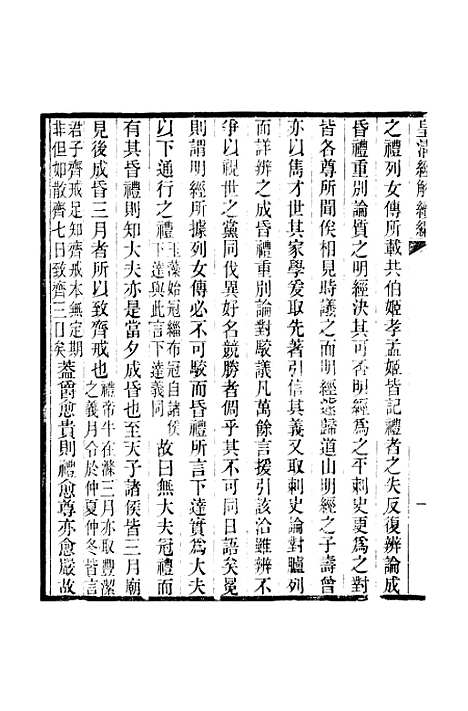 皇清經解續編
一
之禮列女傳所載共伯姬孝孟姬皆記禮者之失反復辨論成
昏禮重別論質之明經決其可否明經爲之平刺史更爲之對
皆各尊所聞俟相見時議之而明經遽歸道山明經之子壽曾
亦以雋才世其家學爰取先著引信其義又取刺史論對臚列
而詳辨之成昏禮重別論對駮議凡萬餘言援引該洽雖辨不
爭以視世之黨同伐異好名競勝者倜乎其不可同日語矣冕
則謂明經所據列女傳必不可駮而昏禮所言下達實爲大夫
以下通行之禮玉藻始冠緇布冠自諸侯下達與此言下達義同故曰無大夫冠禮而
有其昏禮則知大夫亦是當夕成昏也至天子諸侯皆三月廟
見後成昏三月者所以致齊戒也禮帝牛在滌三月亦取三月之義月令於仲夏仲冬皆言
君子齊戒足知齊戒本無定期非但如散齊七日致齊三日矣蓋爵愈貴則禮愈尊亦愈嚴故